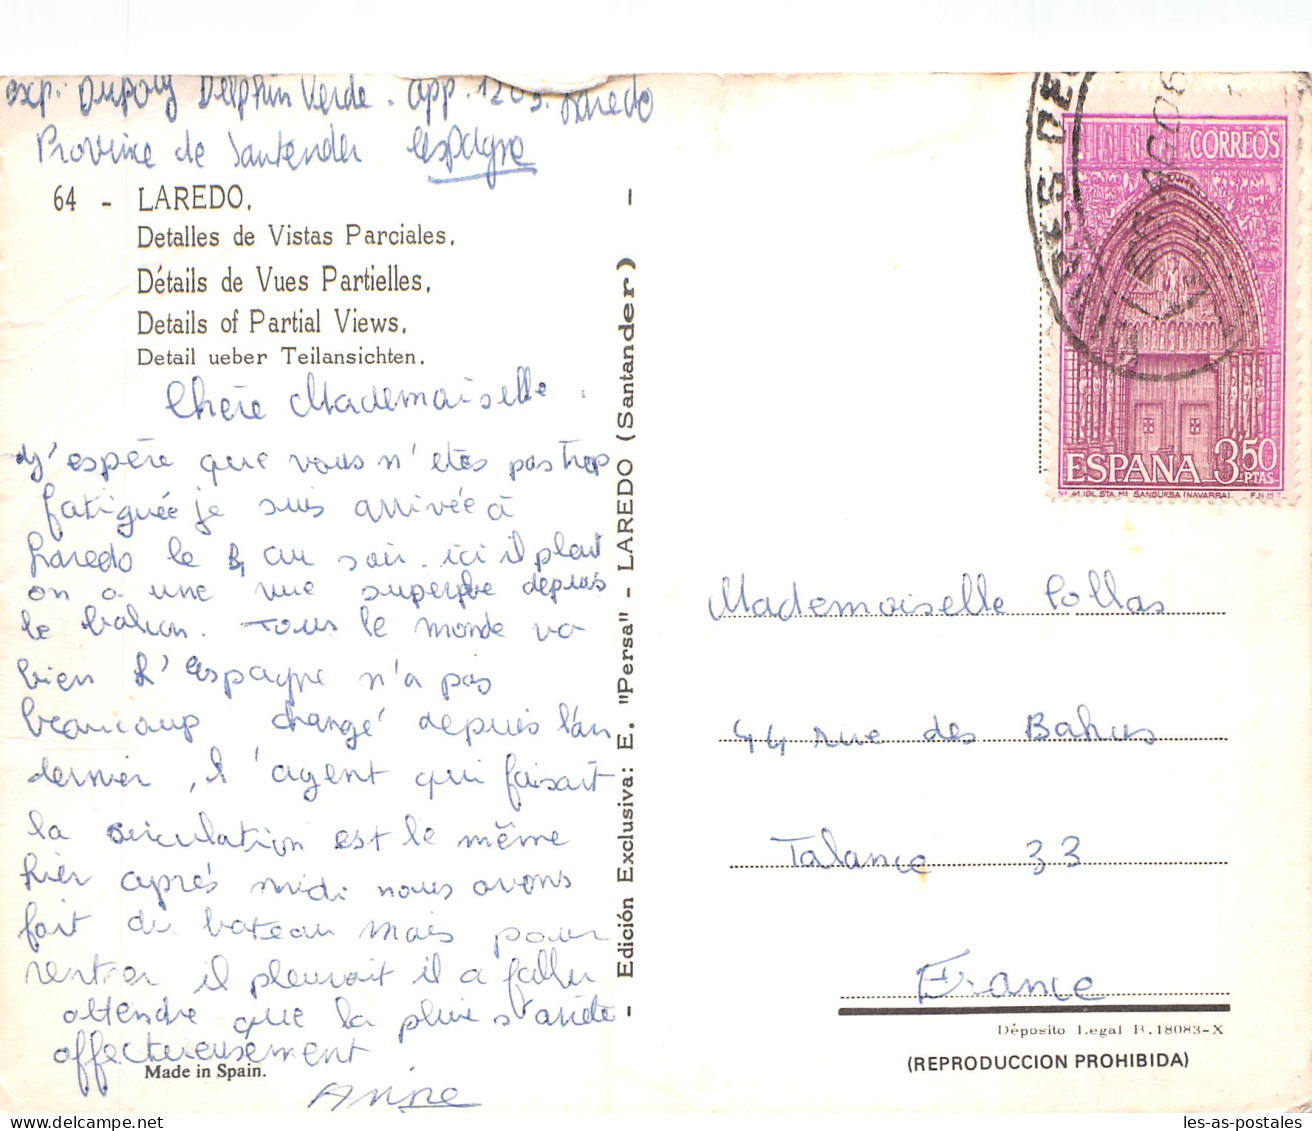 exp: Dupouy Delphin Verde. app. 1203. Laredo
Province de Santender Espagne
64 - LAREDO.
Detalles de Vistas Parciales.
Détails de Vues Partielles.
Details of Partial Views.
Detail ueber Teilansichten.
Chère Mademoiselle.
J'espère que vous n'etes pas trop
fatiguée je suis arrivée à
Laredo le au soir. ici il pleut
on a une vue superbe depuis
le balcon. Tous le monde va
bien L'Espagne n'a pas
beaucoup changé depuis l'an
dernier, l'agent qui faisait
la circulation est le même
hier après midi nous avons
fait du bateau mais pour
rentrer il pleuvait il a fallu
attendre que la pluie s'arrête
affectueusement
Anne
Made in Spain.
- Edición Exclusiva: E. "Persa" - LAREDO (Santander) -
CORREOS
ESPAÑA 3,50 PTAS
IGL. STA. Mª SANGÜESA (NAVARRA) F.N.M.T.
Mademoiselle Collas
44 rue des Bahus
Talance 33
France
Déposito Legal B. 18083-X
(REPRODUCCION PROHIBIDA)
les-as-postales.com